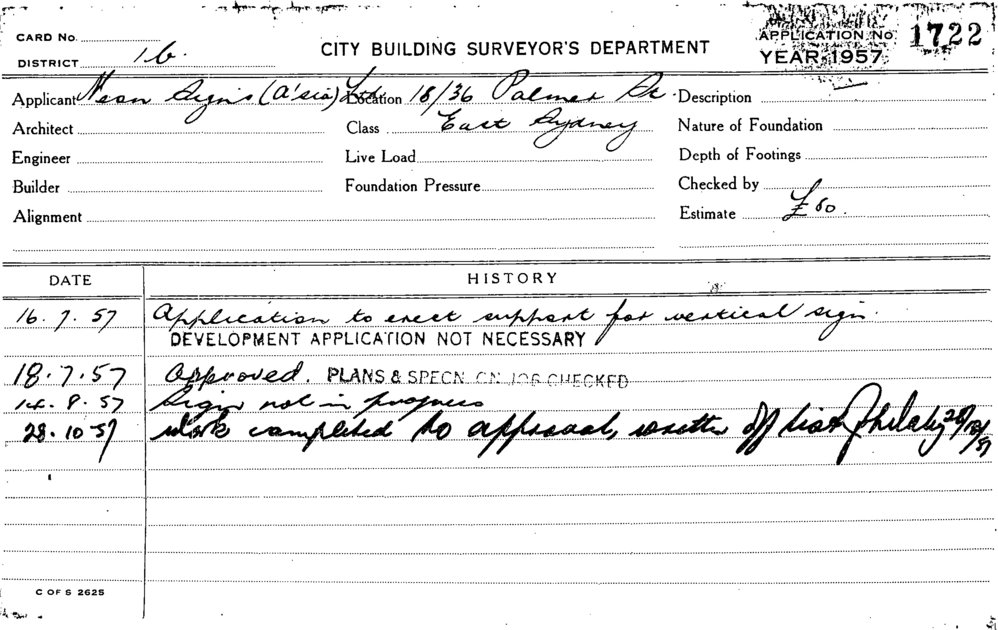 CARD No.
DISTRICT 16
CITY BUILDING SURVEYOR'S DEPARTMENT
APPLICATION No. 1722
YEAR 1957
Applicant Neon Signs (A'sia) Ltd Location 18/36 Palmer St. Description
Architect Class East Sydney Nature of Foundation
Engineer Live Load Depth of Footings
Builder Foundation Pressure Checked by
Alignment Estimate £80.
DATE HISTORY
16.7.57 Application to erect support for vertical sign.
DEVELOPMENT APPLICATION NOT NECESSARY
18.7.57 Approved. PLANS & SPECN ON JOB CHECKED
14.8.57 Sign not in progress
28.10.57 Work completed to approval, written off list 28/10/57
C OF S 2625